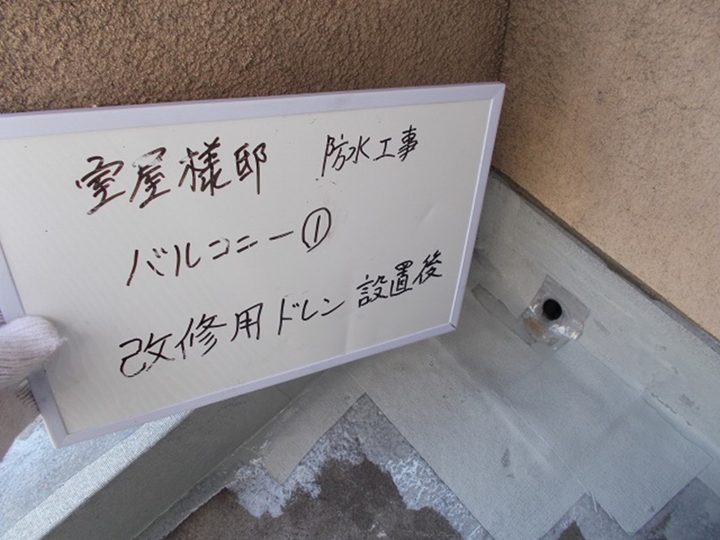 室屋様邸 防水工事
バルコニー①
改修用ドレン 設置後